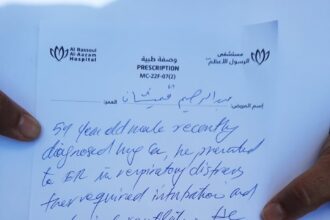 Al Rassoul
Al Aazam
Hospital
وصفة طبية
PRESCRIPTION
MC-22F-07(2)
مستشفى
الرسول الأعظم
إسم المريض: العمر:
54 year old male recently
diagnosed lung Ca, he presented
to ER in respiratory distress
then required intubation and
He